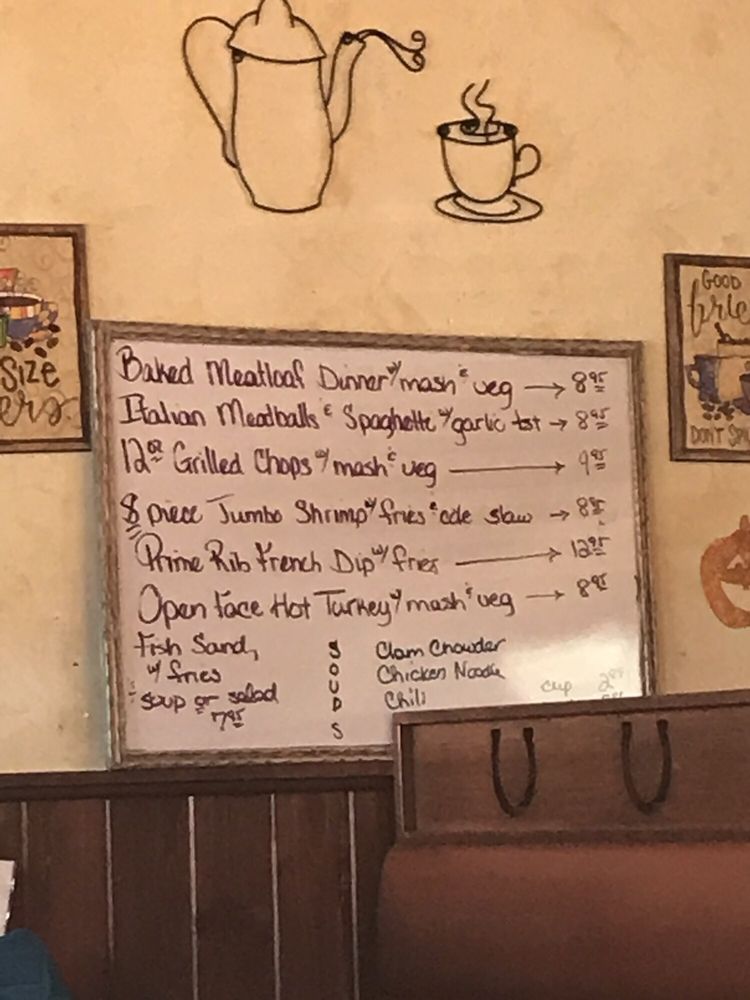 Baked Meatloaf Dinner w/ mash & veg → 8.95
Italian Meatballs & Spaghette w/ garlic tst → 8.95
12oz Grilled Chops w/ mash & veg → 9.95
8 piece Jumbo Shrimp w/ fries & cole slaw → 8.95
Prime Rib French Dip w/ fries → 12.95
Open Face Hot Turkey w/ mash & veg → 8.95
Fish Sand,
w/ fries
& soup or salad
7.95
SOUPS
Clam Chowder
Chicken Noodle
Chili
cup
SIZE
GOOD
DON'T